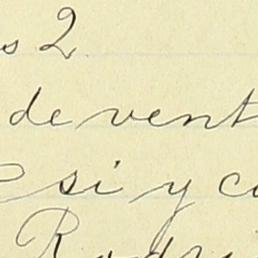 s 2
de vent
si y co
Rodri